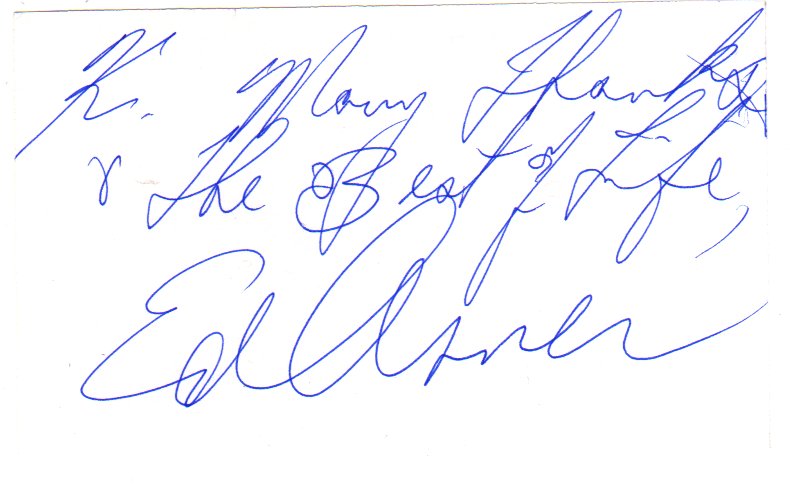 Hi. Many Thanks
& the Best of Life,
Ed Asner